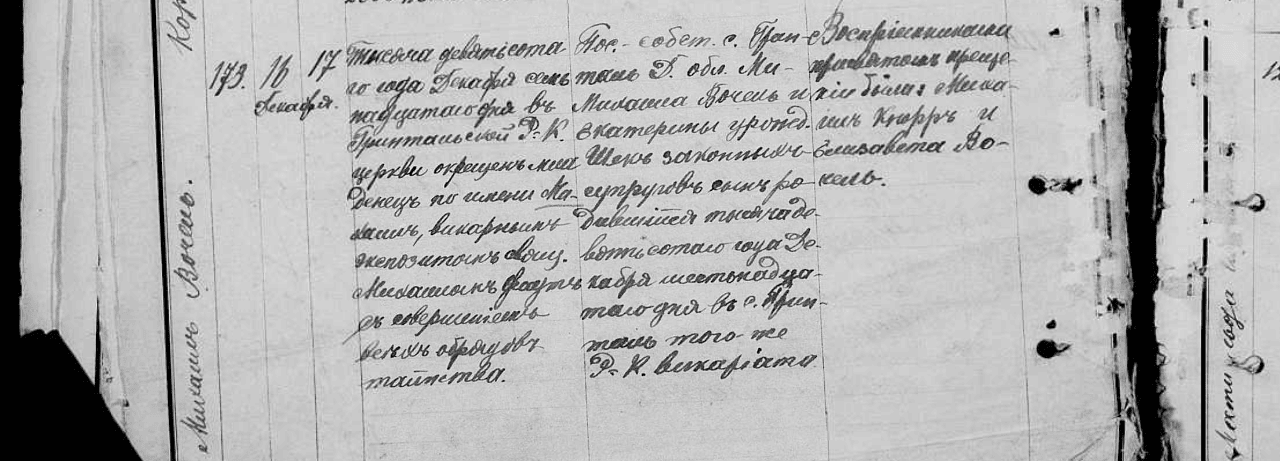 Михаилъ Вочель.
173.
16
Декабря.
17
Тысяча девятьсота-
го года Декабря семь
надцатаго дня въ
Гринтальской Р. К.
церкви окрещенъ мла
денецъ по имени Ми-
хаилъ, викарнымъ
экспозитомъ свящ.
Михаиломъ
съ совершеніемъ
всѣхъ обрядовъ
таинства.
Пос.- собст. с. Грин-
таль Д. обл. Ми-
Михаила Вочель и
Екатерины урожд.
Шекъ законныхъ
супруговъ сынъ ро-
дившійся тысяча де-
вятьсотаго года Де-
кабря шестьнадца-
таго дня въ с. Грин-
таль того же
Р. К. викаріата
Воспріемниками
при святомъ креще-
ніи были: Миха-
илъ Кнорръ и
Елизавета Во-
кель.